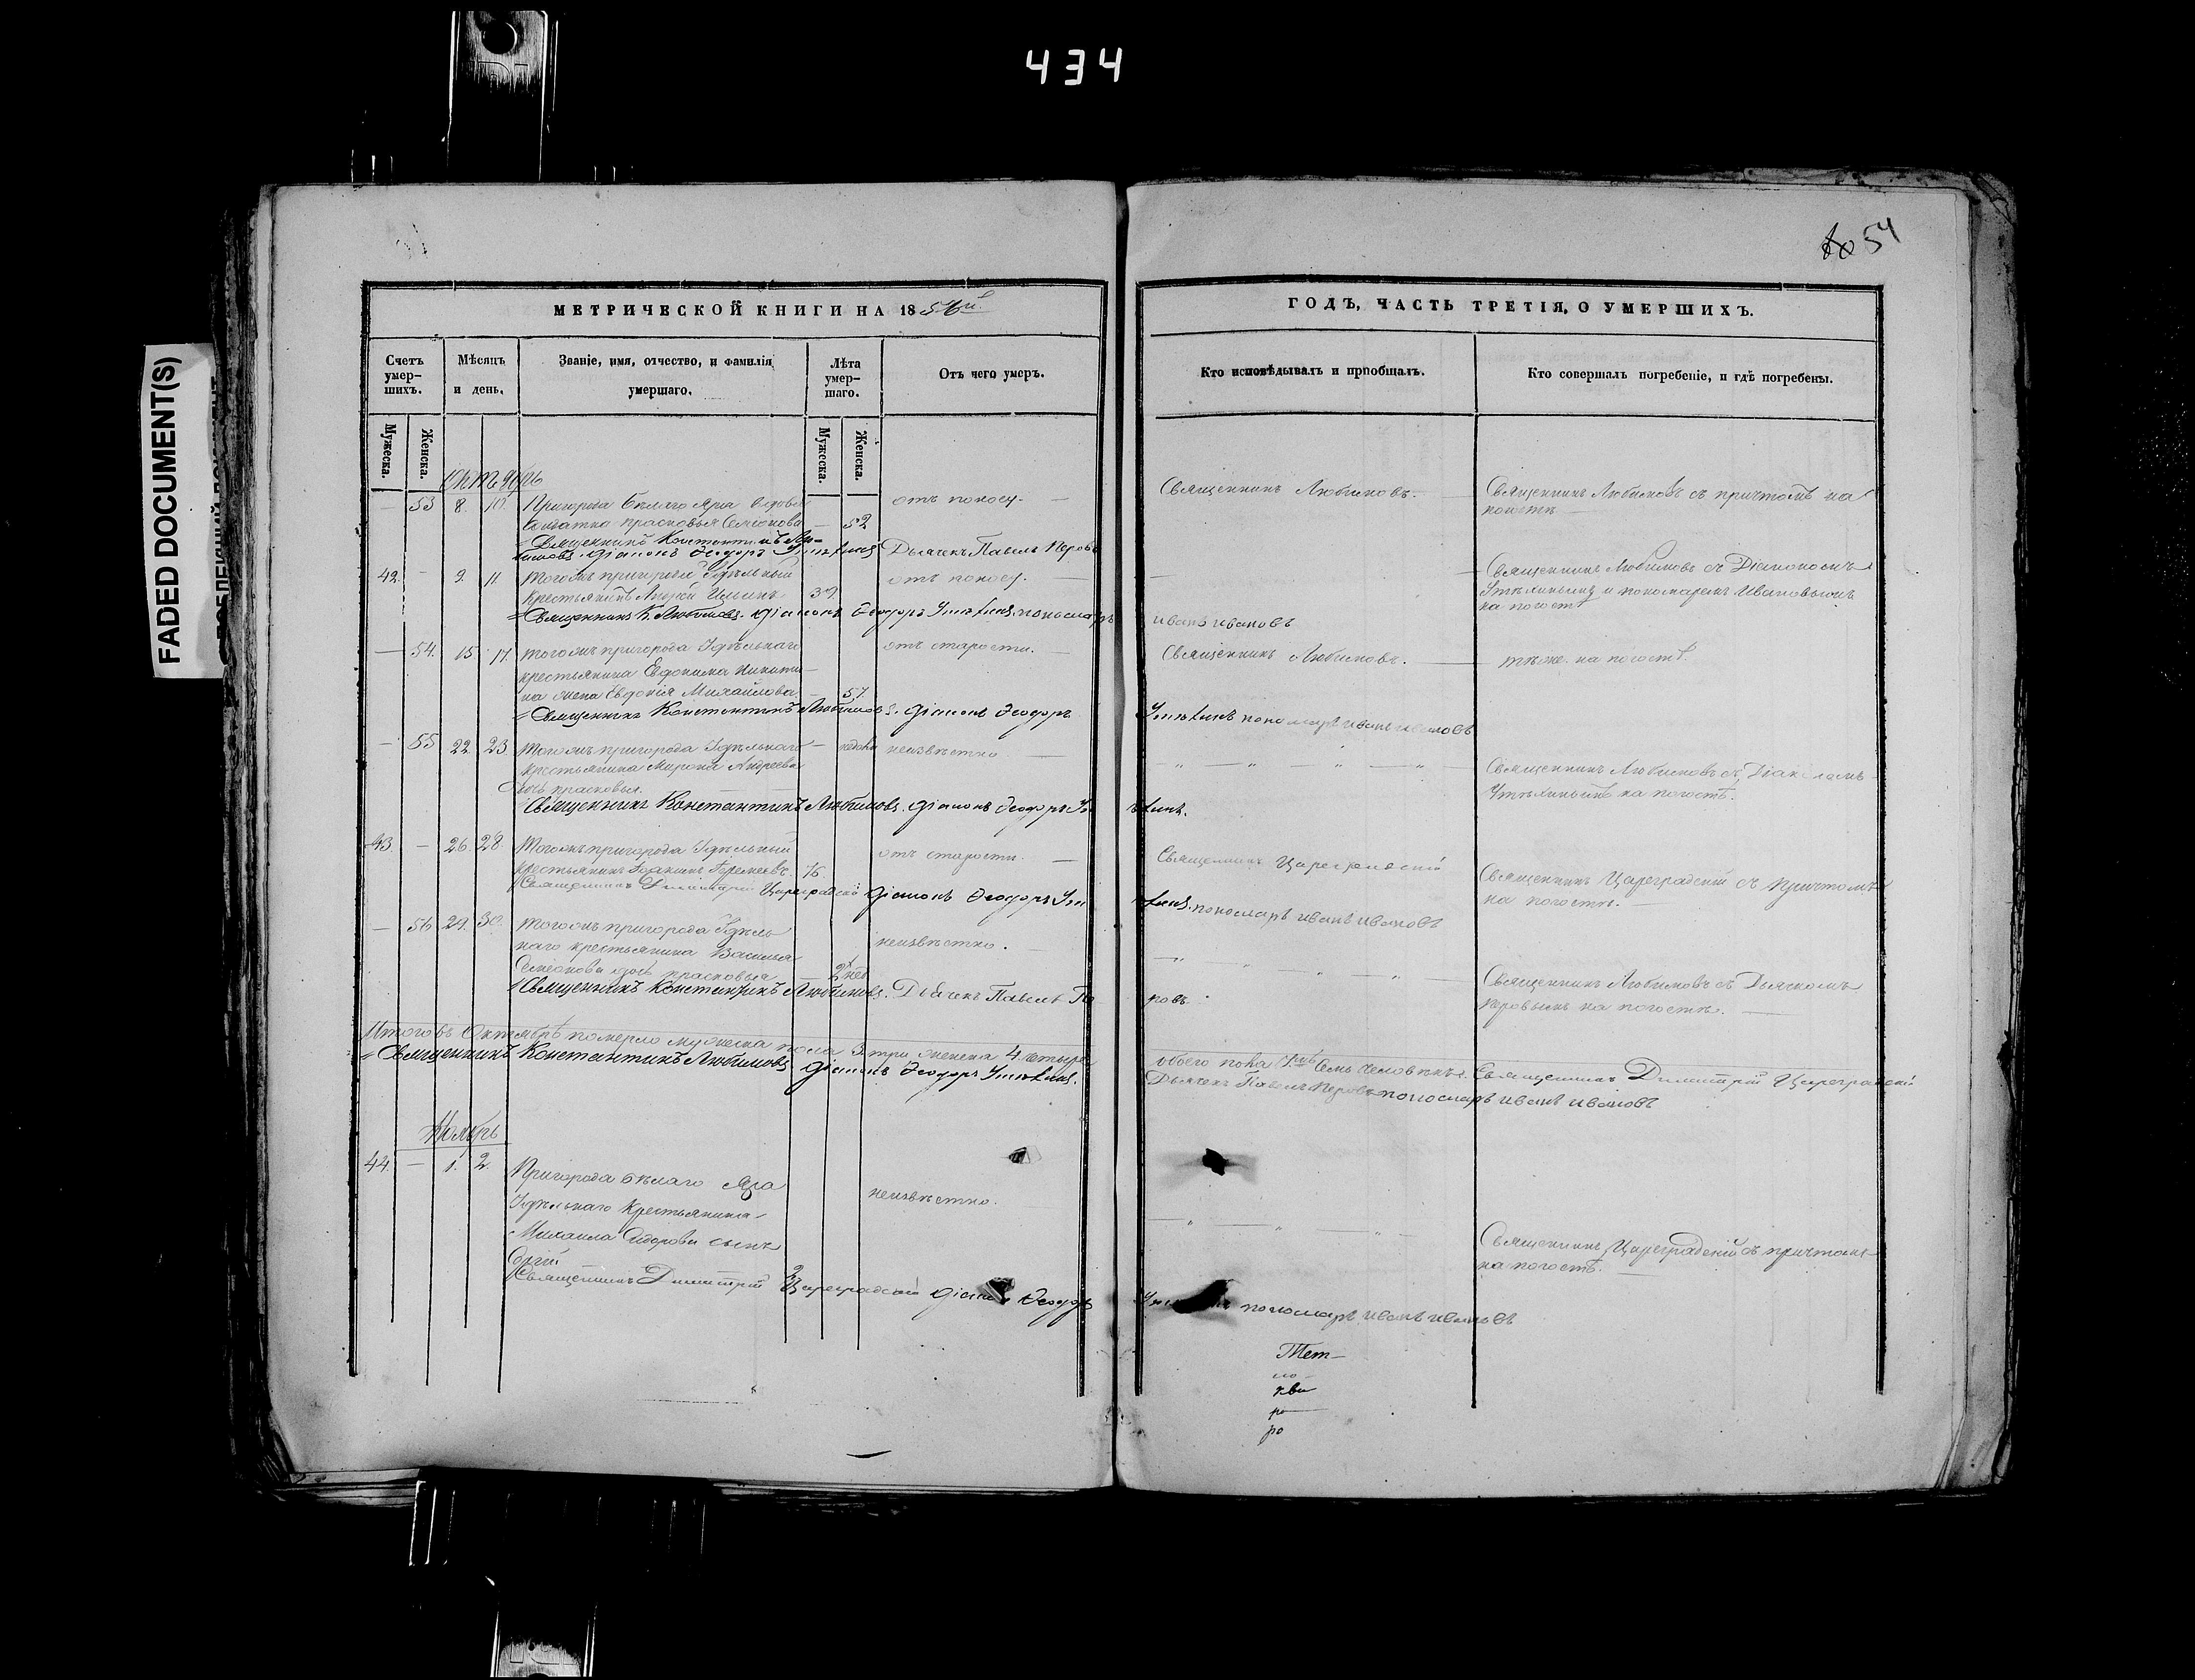 434
54
FADED DOCUMENT(S)
МЕТРИЧЕСКОЙ КНИГИ НА 1856й
ГОДЪ, ЧАСТЬ ТРЕТІЯ, О УМЕРШИХЪ.
Счетъ умер-шихъ.
Мѣсяцъ и день.
Званіе, имя, отчество, и фамилія умершаго.
Лѣта умер-шаго.
Отъ чего умеръ.
Кто исповѣдывалъ и пріобщалъ.
Кто совершалъ погребеніе, и гдѣ погребены.
Мужеска.
Женска.
Мужеска.
Женска.
Октябрь
— 53 8. 10. Пригорода Бѣлаго Яра вдова
солдатка Прасковья Семіонова — 52 отъ поносу. —
Священникъ Любимовъ. — Священникъ Любимовъ съ причтомъ на
погостѣ —
Священникъ Константинъ Лю-
бимовъ. Діаконъ Ѳеодоръ Дьячекъ Павелъ Перовъ
42. — 9. 11. Тогожъ пригорода Удѣльный
крестьянинъ Андрей Ильинъ 39. отъ поносу.
Священникъ Любимовъ съ Діакономъ
и пономаремъ Ивановымъ
на погостѣ
Священникъ К. Любимовъ. Діаконъ Ѳеодоръ пономарь
Иванъ Ивановъ
— 54. 15. 17. Тогожъ пригорода Удѣльнаго
крестьянина Евдокима Никити-
на жена Евдокія Михайлова — 57. отъ старости. —
Священникъ Любимовъ. — тѣже на погостѣ.
Священникъ Константинъ Любимовъ. Діаконъ Ѳеодоръ
пономарь Иванъ Ивановъ
— 55 22. 23. Тогожъ пригорода Удѣльнаго — неизвѣстно —
крестьянина Мирона Андреева
дочь Прасковья.
Священникъ Любимовъ съ Діакономъ
на погостѣ.
Священникъ Константинъ Любимовъ. Діаконъ Ѳеодоръ
43. — 26. 28. Тогожъ пригорода Удѣльный
крестьянинъ 76. отъ старости. —
Священникъ Цареградскій
Священникъ Цареградскій съ причтомъ
на погостѣ. —
Священникъ Димитрій Цареградскій Діаконъ Ѳеодоръ
пономарь Иванъ Ивановъ
— 56 29. 30. Тогожъ пригорода Удѣль-
наго крестьянина Василья
Семіонова дочь Прасковья — 2 нед. неизвѣстно. —
Священникъ Любимовъ съ Дьячкомъ
Перовымъ на погостѣ. —
Священникъ Константинъ Любимовъ. Дьячекъ Павелъ Пе
ровъ.
Итого въ Октябрѣ померло мужеска пола 3. три женска 4. четыре
обоего пола семь человѣкъ. Священникъ Димитрій Цареградскій
Священникъ Константинъ Любимовъ Діаконъ Ѳеодоръ
Дьячекъ Павелъ Перовъ пономарь Иванъ Ивановъ
Ноябрь
44. — 1. 2. Пригорода Бѣлаго Яра
Удѣльнаго Крестьянина неизвѣстно.
Михаила Ѳедорова сынъ
Священникъ Цареградскій съ причтомъ
на погостѣ. —
Священникъ Димитрій Цареградскій Діаконъ Ѳеодоръ
пономарь Иванъ Ивановъ